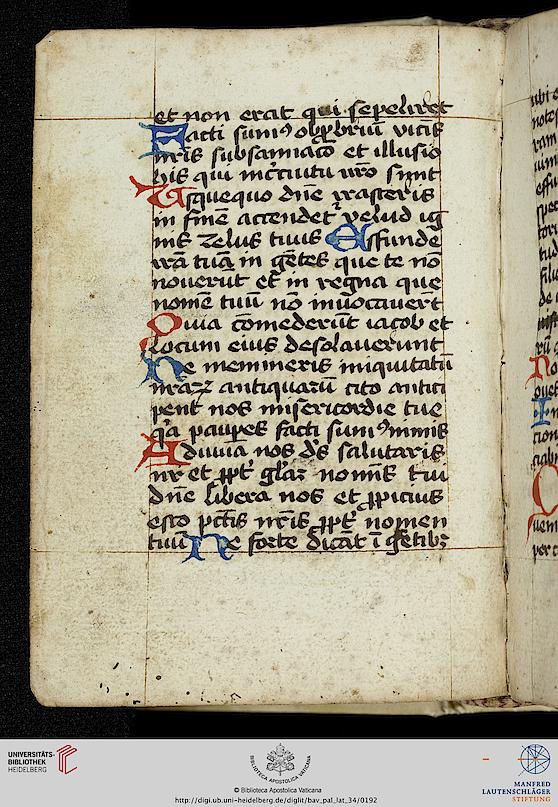 et non erat qui sepeliret
Facti sumꝰ opp̱briū vicīs
nr̄is subsannac̄o et illusio
his qui in cͥcuitu nr̄o sūnt
Usquequo dn̄e irasceris
in finē accendet᷑ velud ig
nis zelus tuus Effunde
irā tuā in gētes que te nō
noverūt et in regna que
nomē tuū nō invocaverūt
Quia cōmederūt iacob et
locum eius desolaverunt
Ne memineris iniquitatū
nr̄aꝝ antiquarū cito antici
pent nos misericordie tue
qͣ paup̱es facti sumꝰ nimis
Adiuva nos dꝰs salutaris
nr̄ et ꝓpt᷑ gl̄az nominis tui
dn̄e libera nos et ꝓpicius
esto pctīs nr̄is ꝓpt᷑ nomen
tuū Ne forte dicāt ī gētibꝫ
UNIVERSITÄTS-
BIBLIOTHEK
HEIDELBERG
BIBLIOTECA APOSTOLICA VATICANA
© Biblioteca Apostolica Vaticana
http://digi.ub.uni-heidelberg.de/diglit/bav_pal_lat_34/0192
MANFRED
LAUTENSCHLÄGER
STIFTUNG